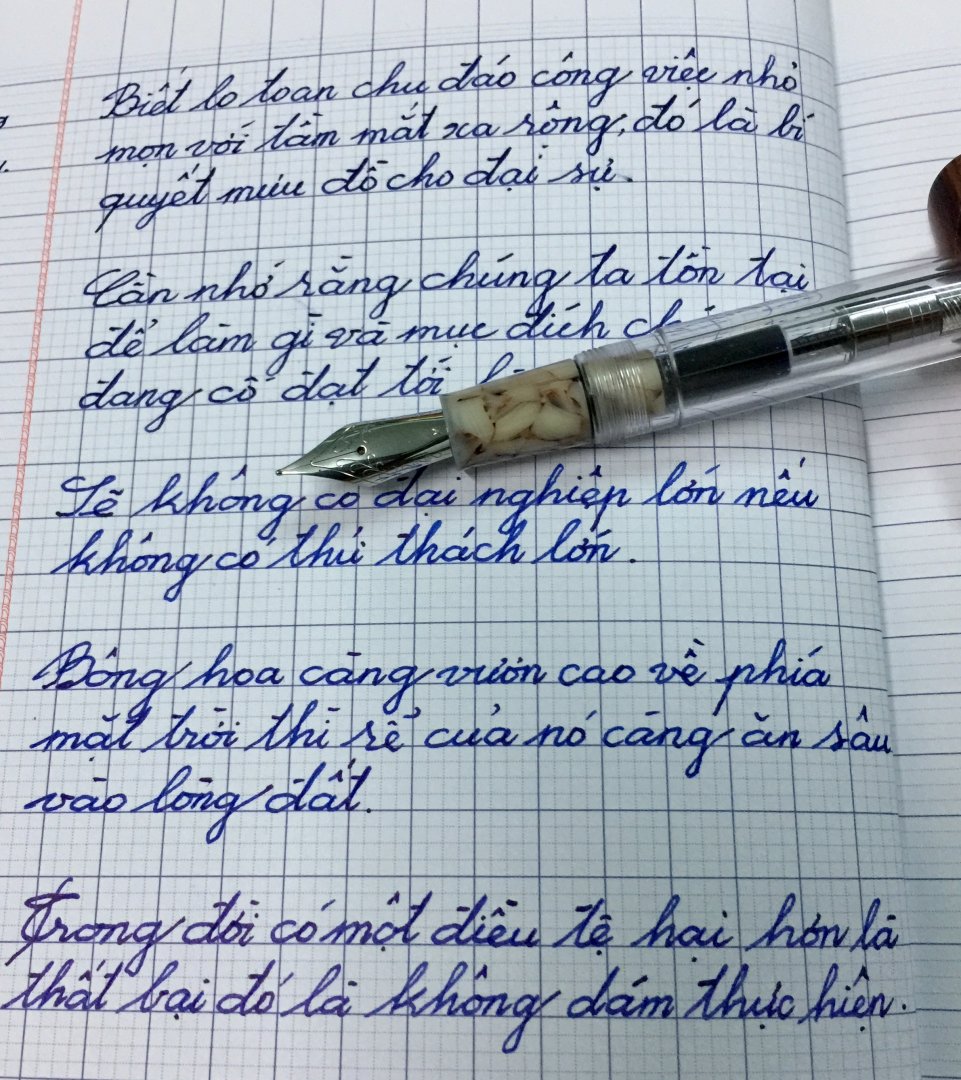 Biết lo toan chu đáo công việc nhỏ
mọn với tầm mắt xa rộng, đó là bí
quyết mưu đồ cho đại sự.
Cần nhớ rằng chúng ta tồn tại
để làm gì và mục đích
đang cố đạt tới
Sẽ không có đại nghiệp lớn nếu
không có thử thách lớn.
Bông hoa càng vươn cao về phía
mặt trời thì rễ của nó càng ăn sâu
vào lòng đất.
Trong đời có một điều tệ hại hơn là
thất bại đó là không dám thực hiện.